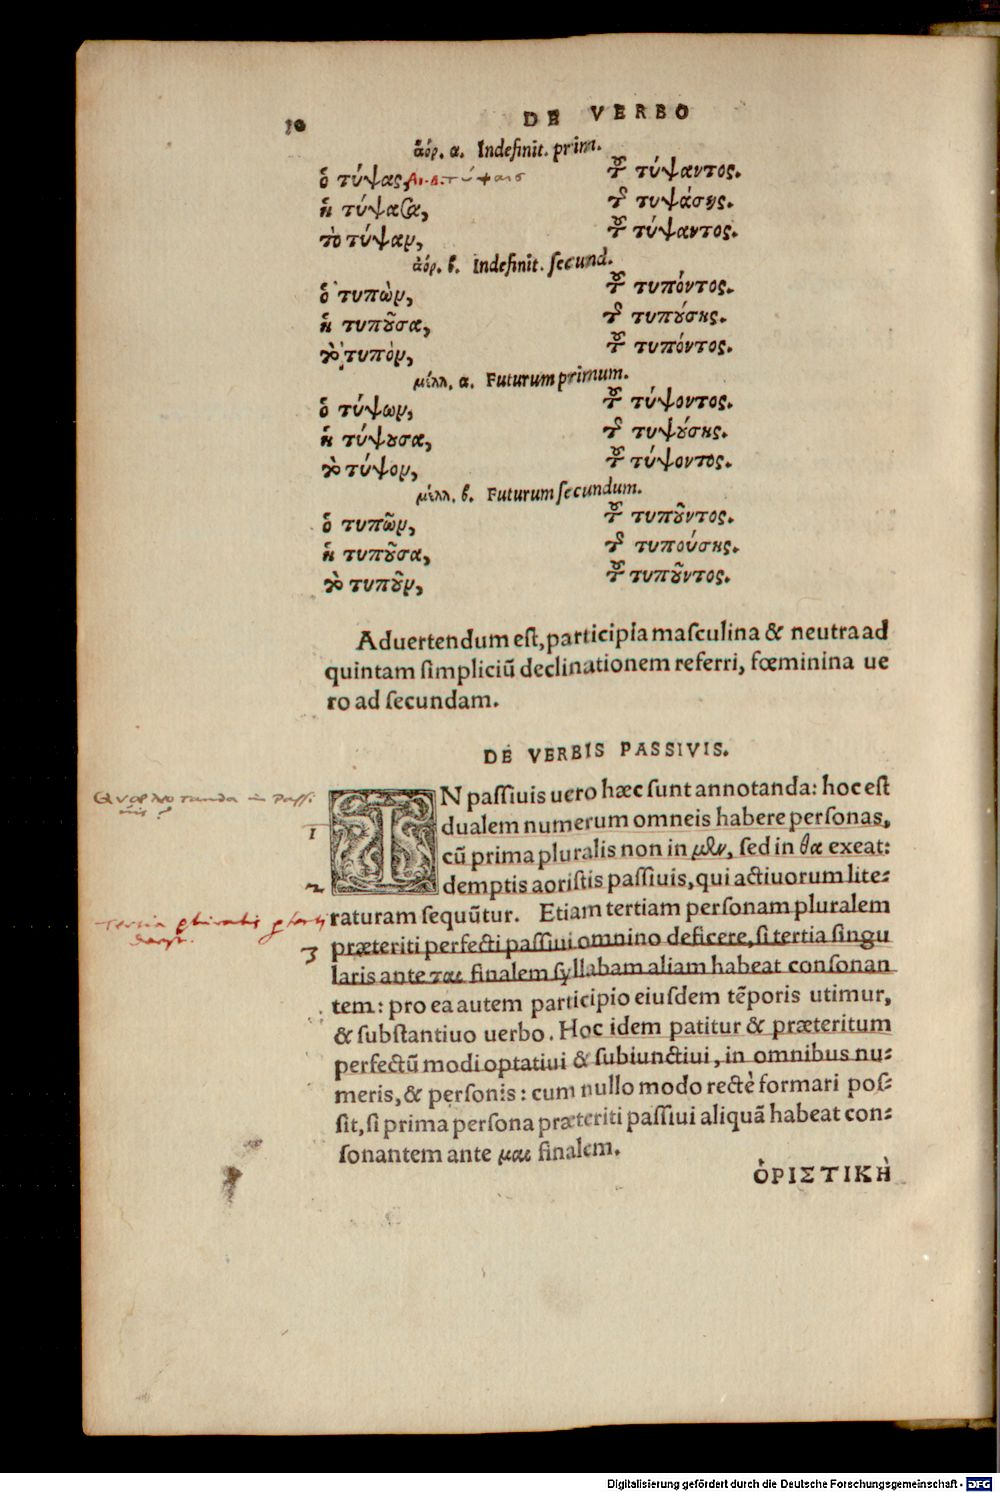 10
DE VERBO
ἀόρ. α. Indefinit. prim.
ὁ τύψας, Αι.Δ. τύψαις τοῦ τύψαντος.
ἡ τύψασα, τῆς τυψάσης.
τὸ τύψαν, τοῦ τύψαντος.
ἀόρ. β. Indefinit. ſecund.
ὁ τυπὼν, τοῦ τυπόντος.
ἡ τυποῦσα, τῆς τυπούσης.
τὸ τυπόν, τοῦ τυπόντος.
μέλλ. α. Futurum primum.
ὁ τύψων, τοῦ τύψοντος.
ἡ τύψουσα, τῆς τυψούσης.
τὸ τύψον, τοῦ τύψοντος.
μέλλ. β. Futurum ſecundum.
ὁ τυπῶν, τοῦ τυποῦντος.
ἡ τυποῦσα, τῆς τυπούσης.
τὸ τυποῦν, τοῦ τυποῦντος.
Aduertendum eſt, participia maſculina & neutra ad
quintam ſimpliciū declinationem referri, fœminina ue
ro ad ſecundam.
DE VERBIS PASSIVIS.
Quae notanda in Paſſi
uis?
IN paſſiuis uero hæc ſunt annotanda: hoc eſt
1
dualem numerum omneis habere perſonas,
cū prima pluralis non in μεν, ſed in θα exeat:
2
demptis aoriſtis paſſiuis, qui actiuorum lite⸗
raturam ſequūtur. Etiam tertiam perſonam pluralem
Tertia pluralis
præteriti perfecti paſſiui omnino deficere, ſi tertia ſingu
3
laris ante ται finalem ſyllabam aliam habeat conſonan
tem: pro ea autem participio eiuſdem tēporis utimur,
& ſubſtantiuo uerbo. Hoc idem patitur & præteritum
perfectū modi optatiui & ſubiunctiui, in omnibus nu⸗
meris, & perſonis: cum nullo modo rectè formari poſ⸗
ſit, ſi prima perſona præteriti paſſiui aliquā habeat con⸗
ſonantem ante μαι finalem.
ὉΡΙΣΤΙΚῊ
Digitalisierung gefördert durch die Deutsche Forschungsgemeinschaft - DFG